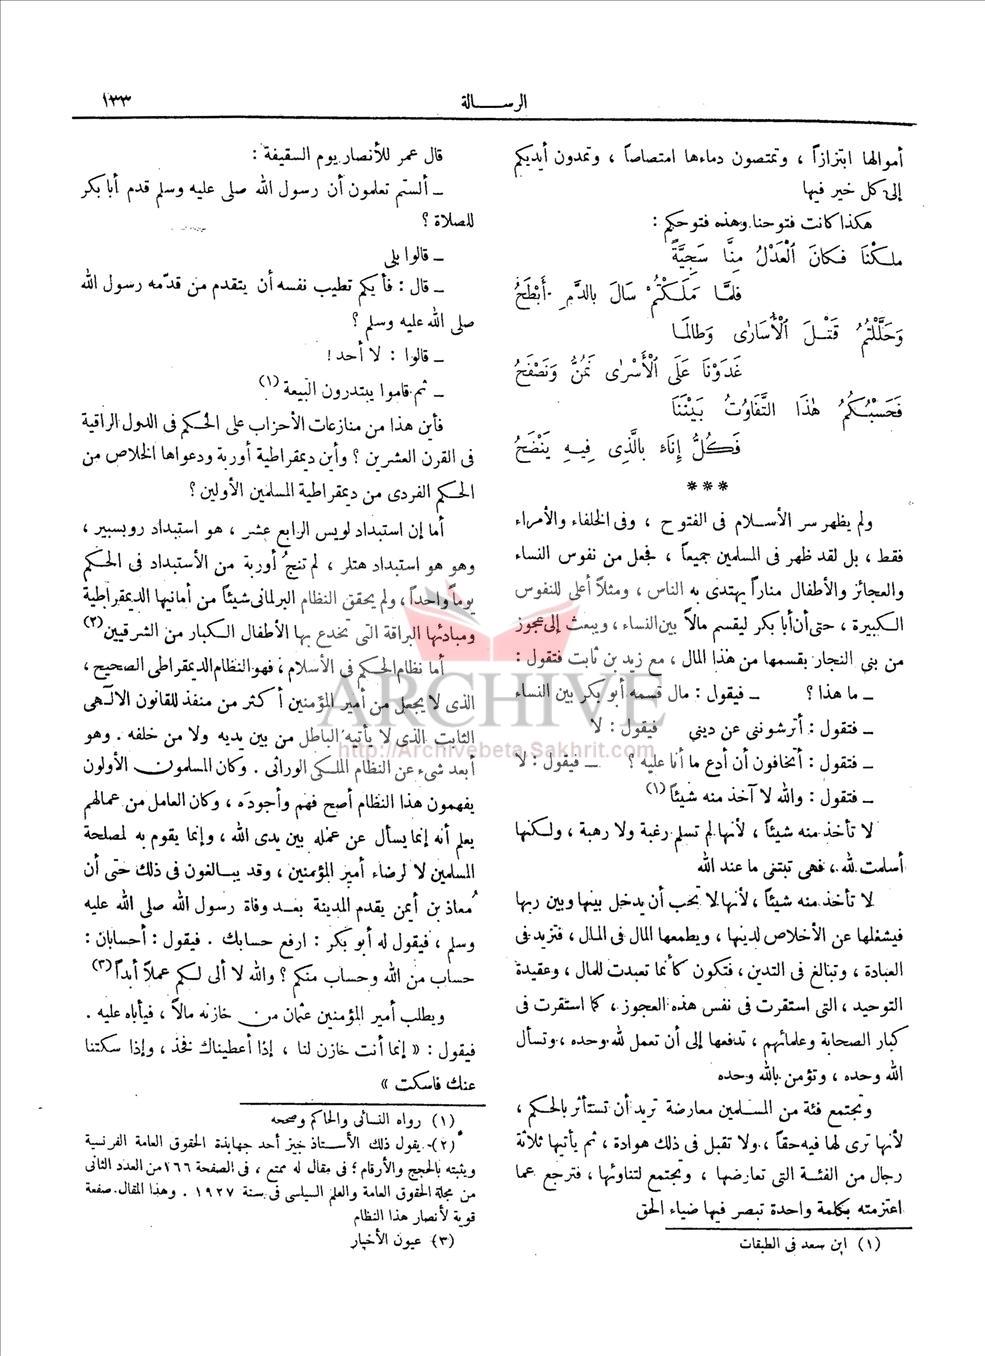 الرسالة
١٣٣
أموالها ابتزازاً ، وتمتصون دماءها امتصاصاً ، وتمدون أيديكم
إلى كل خير فيها
هكذا كانت فتوحنا وهذه فتوحكم :
ملكْنَا فكانَ الْعَدْلُ مِنَّا سَجِيَّةً
فلمَّا مَلَكْتُمْ سَالَ بالدَّمِ أَبْطَحُ
وَحَلَّلْتُمُ قَتْلَ الْأَسَارٰى وَطالمَا
غَدَوْنَا عَلَى الْأَسْرٰى نَمُنُّ وَنَصْفَحُ
فَحَسْبُكُمُ هٰذَا التَّفَاوُتُ بَيْنَنَا
فَكُلُّ إِنَاءٍ بالَّذِى فِيهِ يَنْضَحُ
***
ولم يظهر سر الأسلام فى الفتوح ، وفى الخلفاء والأمراء
فقط ، بل لقد ظهر فى المسلمين جميعاً ، فجعل من نفوس النساء
والعجائز والأطفال مناراً يهتدى به الناس ، ومثلاً أعلى للنفوس
الكبيرة ، حتى أن أبا بكر ليقسم مالاً بين النساء ، ويبعث إلى عجوز
من بنى النجار بقسمها من هذا المال ، مع زيد بن ثابت فتقول :
ــ ما هذا ؟ ــ فيقول : مال قسمه أبو بكر بين النساء
ــ فتقول : أترشوننى عن ديني فيقول : لا
ــ فتقول : أتخافون أن أدع ما أنا عليه ؟ ــ فيقول : لا
ــ فتقول : والله لا آخذ منه شيئاً (١)
لا تأخذ منه شيئاً ، لأنها لم تسلم رغبة ولا رهبة ، ولكنها
أسلمت لله ، فهى تبتنى ما عند الله
لا تأخذ منه شيئاً ، لأنها لا تحب أن يدخل بينها وبين ربها
فيشغلها عن الأخلاص لدينها ، ويطمعها المال فى المال ، فتزيد فى
العبادة ، وتبالغ فى التدين ، فتكون كأنما تعبدت للمال ، وعقيدة
التوحيد ، التى استقرت فى نفس هذه العجوز ، كما استقرت فى
كبار الصحابة وعلمائهم ، تدفعها إلى أن تعمل لله وحده ، وتسأل
الله وحده ، وتؤمن بالله وحده
وتجتمع فئة من المسلمين معارضة تريد أن تستأثر بالحكم ،
لأنها ترى لها فيه حقاً ، ولا تقبل فى ذلك هوادة ، ثم يأتيها ثلاثة
رجال من الفئة التى تعارضها ، وتجتمع لتناوئها ، فترجع عما
اعتزمته بكلمة واحدة تبصر فيها ضياء الحق
(١) ابن سعد فى الطبقات
قال عمر للأنصار يوم السقيفة :
ــ ألستم تعلمون أن رسول الله صلى عليه وسلم قدم أبا بكر
للصلاة ؟
ــ قالوا بلى
ــ قال : فأيكم تطيب نفسه أن يتقدم من قدّمه رسول الله
صلى الله عليه وسلم ؟
ــ قالوا : لا أحد !
ــ ثم قاموا يبتدرون البيعة (١)
فأين هذا من منازعات الأحزاب على الحكم فى الدول الراقية
فى القرن العشرين ؟ وأين ديمقراطية أوربة ودعواها الخلاص من
الحكم الفردى من ديمقراطية المسلمين الأولين ؟
أما إن استبداد لويس الرابع عشر ، هو استبداد روبسبير ،
وهو هو استبداد هتلر ، لم تنجُ أوربة من الأستبداد فى الحكم
يوماً واحداً ، ولم يحقق النظام البرلمانى شيئاً من أمانيها الديمقراطية
ومبادئها البراقة التى تخدع بها الأطفال الكبار من الشرقيين (٢)
أما نظام الحكم فى الأسلام ، فهو النظام الديمقراطى الصحيح ،
الذى لا يجعل من أمير المؤمنين أكثر من منفذ للقانون الآلهى
الثابت الذى لا يأتيه الباطل من بين يديه ولا من خلفه . وهو
أبعد شىء عن النظام الملكى الوراثى . وكان المسلمون الأولون
يفهمون هذا النظام أصح فهم وأجودَه ، وكان العامل من عمالهم
يعلم أنه إنما يسأل عن عمَله بين يدى الله ، وإنما يقوم به لمصلحة
المسلمين لا لرضاء أمير المؤمنين ، وقد يبالغون فى ذلك حتى أن
مُعاذ بن أيمن يقدم المدينة بعد وفاة رسول الله صلى الله عليه
وسلم ، فيقول له أبو بكر : ارفع حسابك . فيقول : أحسابان :
حساب من الله وحساب منكم ؟ والله لا ألى لكم عملاً أبداً (٣)
ويطلب أمير المؤمنين عثمان من خازنه مالاً ، فيأباه عليه .
فيقول : « إنما أنت خازن لنا ، إذا أعطيناك فخذ ، وإذا سكتنا
عنك فاسكت »
(١) رواه النسائى والحاكم وصححه
(٢) يقول ذلك الأستاذ خيز أحد جهابذة الحقوق العامة الفرنسية
ويثبته بالحجج والأرقام ؛ فى مقال له ممتع ، فى الصفحة ٢٦٦ من العدد الثانى
من مجلة الحقوق العامة والعلم السياسى فى سنة ١٩٢٧ . وهذا المقال صفعة
قوية لأنصار هذا النظام
(٣) عيون الأخبار
ARCHIVE
http://Archivebeta.Sakhrit.com